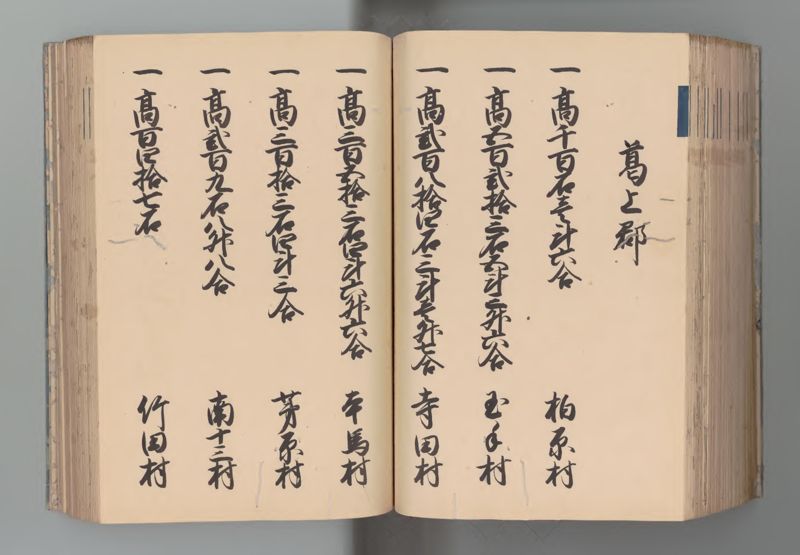 葛上郡
一高千百石壱斗六合 柏原村
一高五百弐拾三石五斗三升六合 玉手村
一高弐百八拾四石二斗壱升七合 寺田村
一高三百五拾三石四斗六升六合 本馬村
一高三百拾三石四斗三合 茅原村
一高弐百九石八升八合 南十三村
一高百四拾七石 竹田村